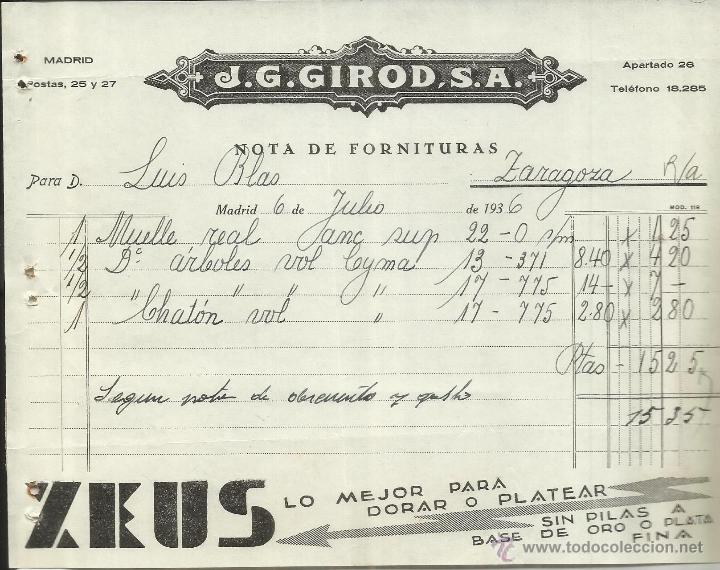 MADRID
Postas, 25 y 27
J. G. GIROD, S. A.
Apartado 26
Teléfono 18.285
NOTA DE FORNITURAS
Para D. Luis Blas Zaragoza R/a
Madrid 6 de Julio de 1936
MOD. 118
1 Muelle real anc sup 22 - 0 s/m x 1 25
1/2 Dc árboles vol Cyma 13 - 371 8.40 x 4 20
1/2 " " " " 17 - 775 14 - x 7 -
1 Chatón vol " 17 - 775 2.80 x 2 80
Ptas - 15 25
Segun nota de descuento y gasto
15 35
ZEUS
LO MEJOR PARA
DORAR O PLATEAR
SIN PILAS A
BASE DE ORO O PLATA
FINA
tc www.todocoleccion.net